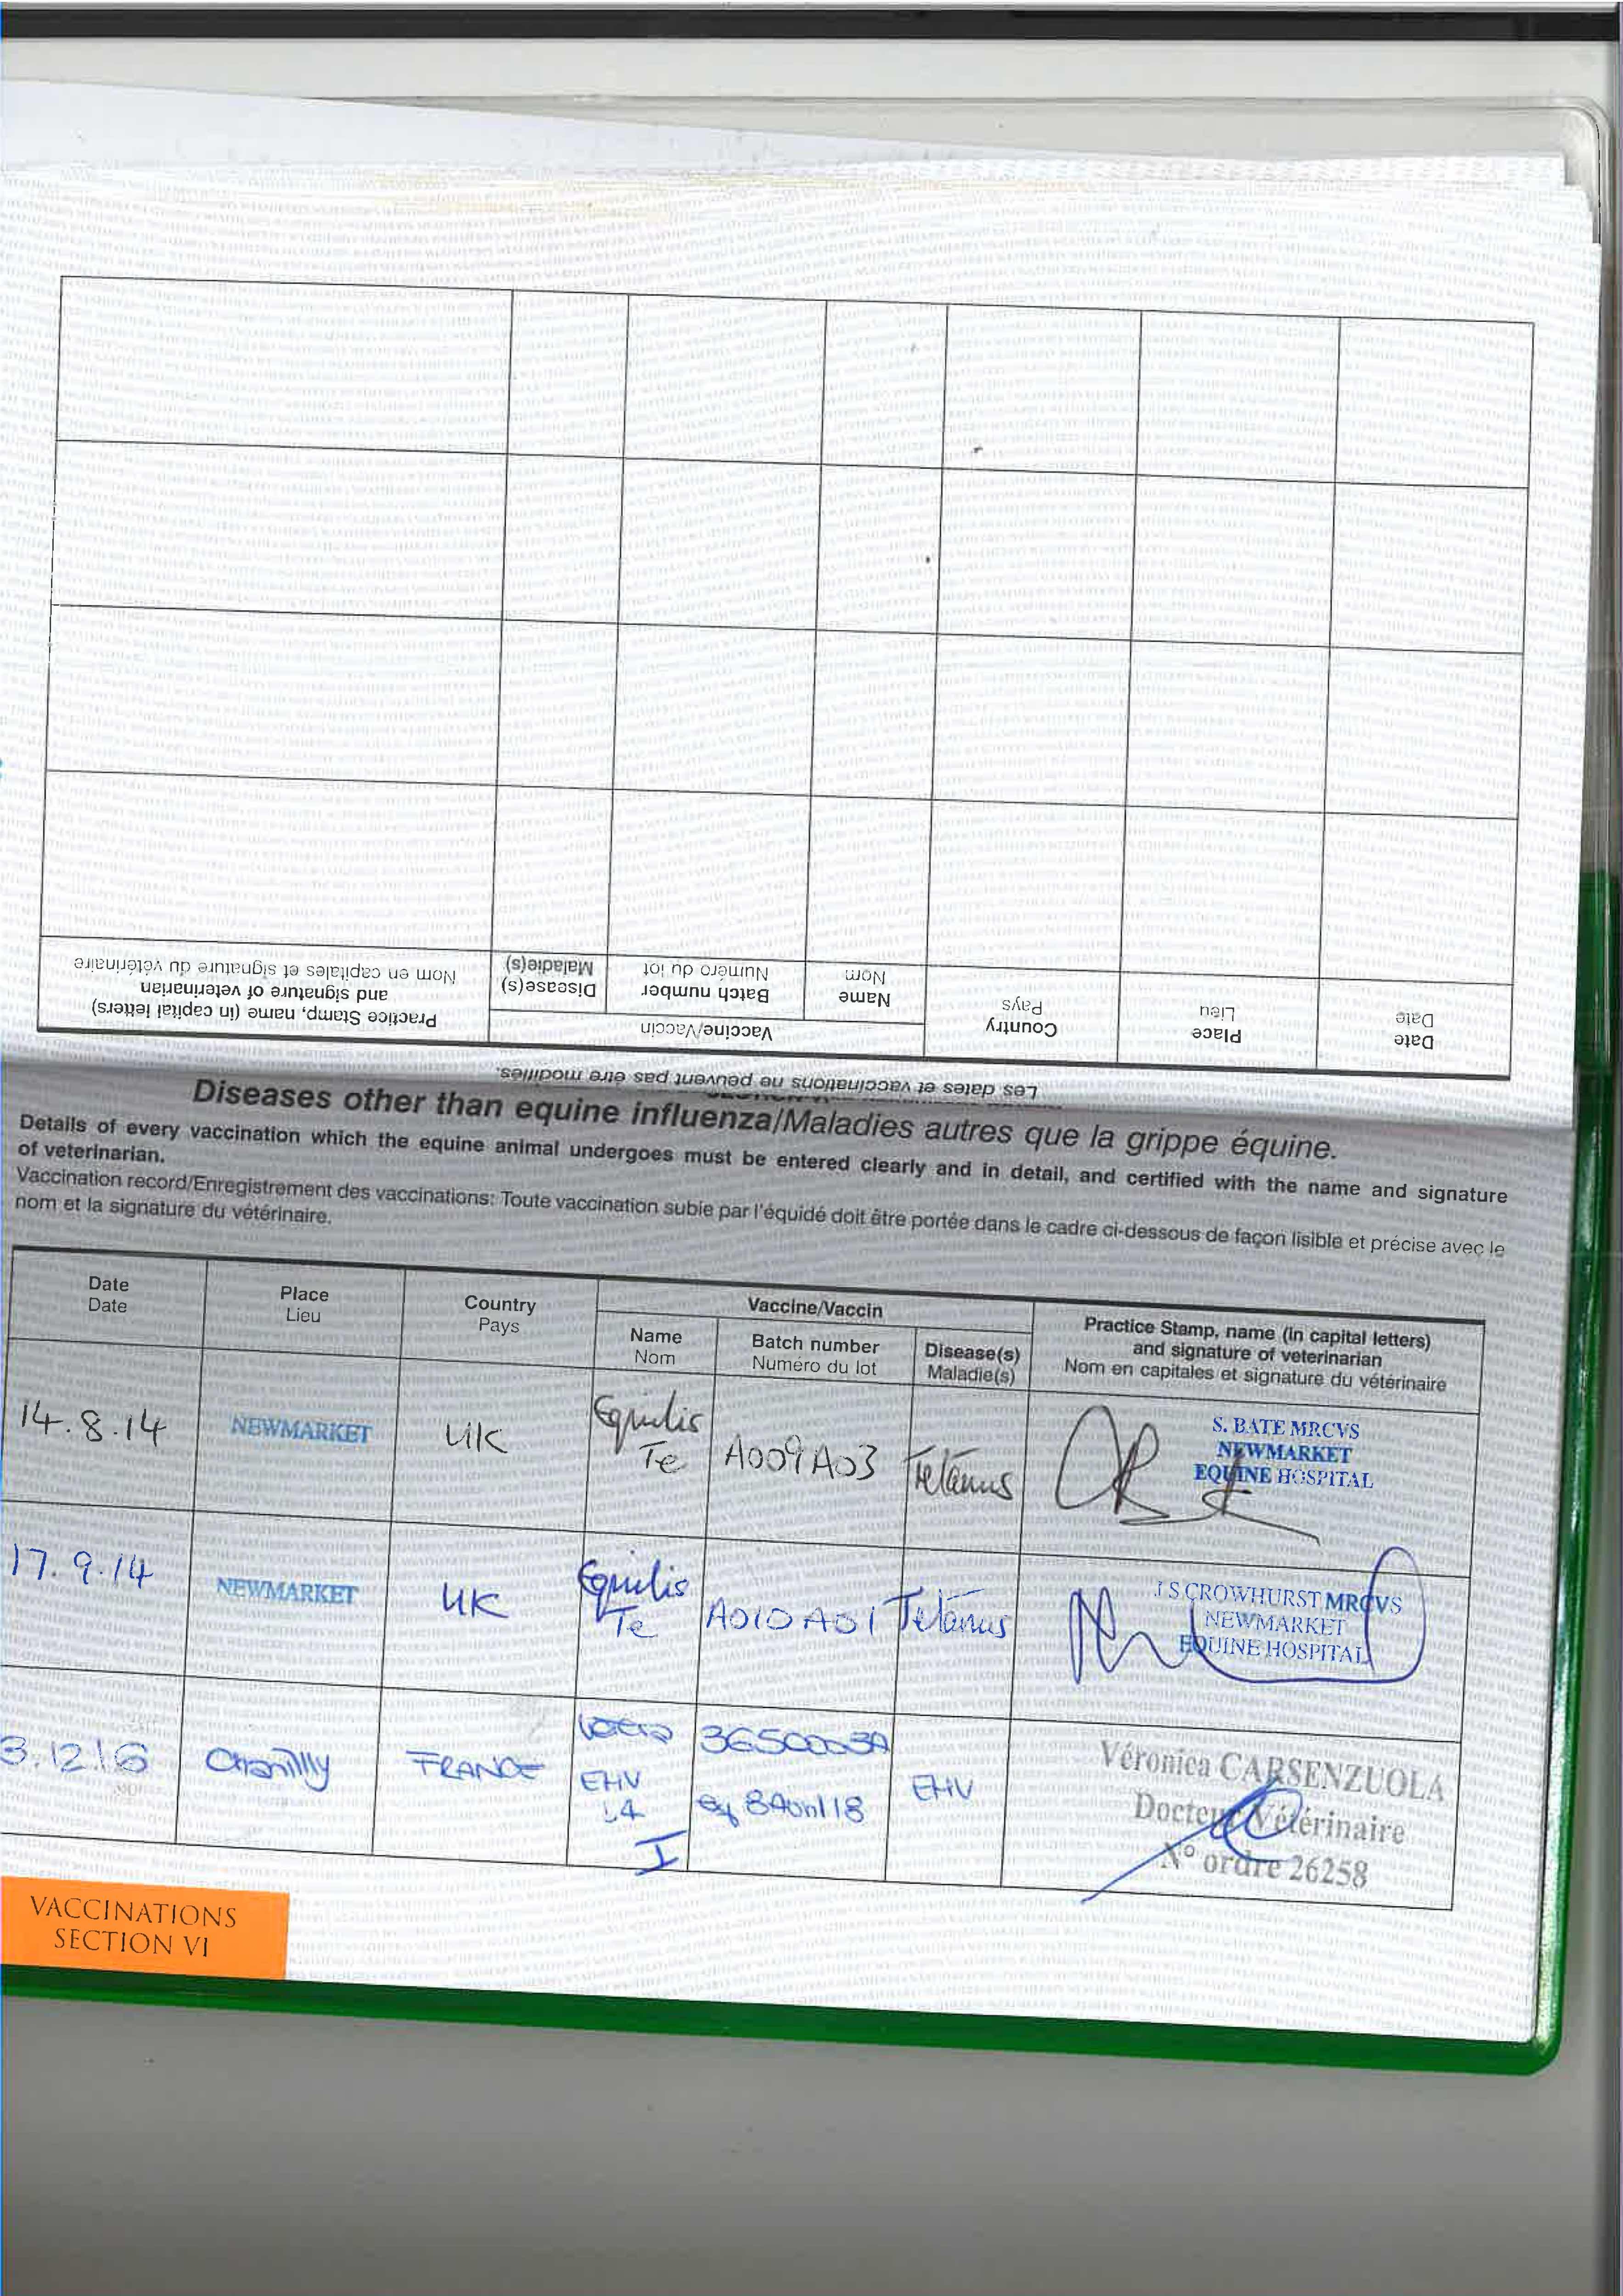 Practice Stamp, name (in capital letters)
and signature of veterinarian
Nom en capitales et signature du vétérinaire
Vaccine/Vaccin
Disease(s)
Maladie(s)
Batch number
Numéro du lot
Name
Nom
Country
Pays
Place
Lieu
Date
Date
Les dates et vaccinations ne peuvent pas être modifiés.
Diseases other than equine influenza/Maladies autres que la grippe équine.
Details of every vaccination which the equine animal undergoes must be entered clearly and in detail, and certified with the name and signature
of veterinarian.
Vaccination record/Enregistrement des vaccinations: Toute vaccination subie par l'équidé doit être portée dans le cadre ci-dessous de façon lisible et précise avec le
nom et la signature du vétérinaire.
Date
Date
Place
Lieu
Country
Pays
Vaccine/Vaccin
Name
Nom
Batch number
Numéro du lot
Disease(s)
Maladie(s)
Practice Stamp, name (in capital letters)
and signature of veterinarian
Nom en capitales et signature du vétérinaire
14.8.14
NEWMARKET
UK
Equilis
Te
A009A03
Tetanus
S. BATE MRCVS
NEWMARKET
EQUINE HOSPITAL
17.9.14
NEWMARKET
UK
Equilis
Te
A010A01
Tetanus
J S CROWHURST MRCVS
NEWMARKET
EQUINE HOSPITAL
3.12.16
Chantilly
FRANCE
EHV
1.4
I
3650003A
8 Avril 18
EHV
Véronica CARSENZUOLA
Docteur Vétérinaire
N° ordre 26258
VACCINATIONS
SECTION VI